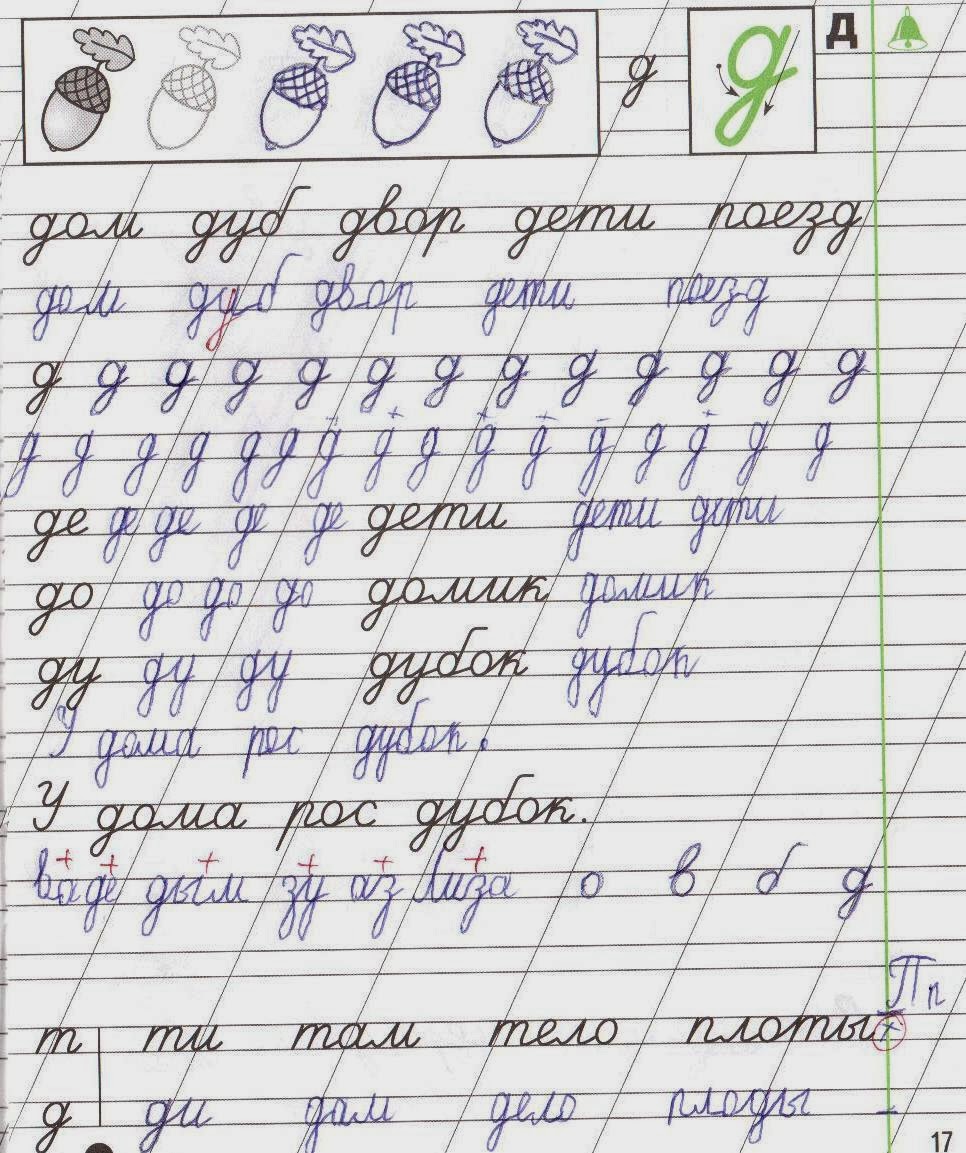 д д Д
дом дуб двор дети поезд
дом дуб двор дети поезд
д д д д д д д д д д д д д
д д д д д д д д д д д д д д д д
де де де де де дети дети дети
до до до до домик домик
ду ду ду дубок дубок
У дома рос дубок.
У дома рос дубок.
ва де дым зу аз лиза о в б д
Пп
т ти там тело плоты
д ди дам дело плоды –
17